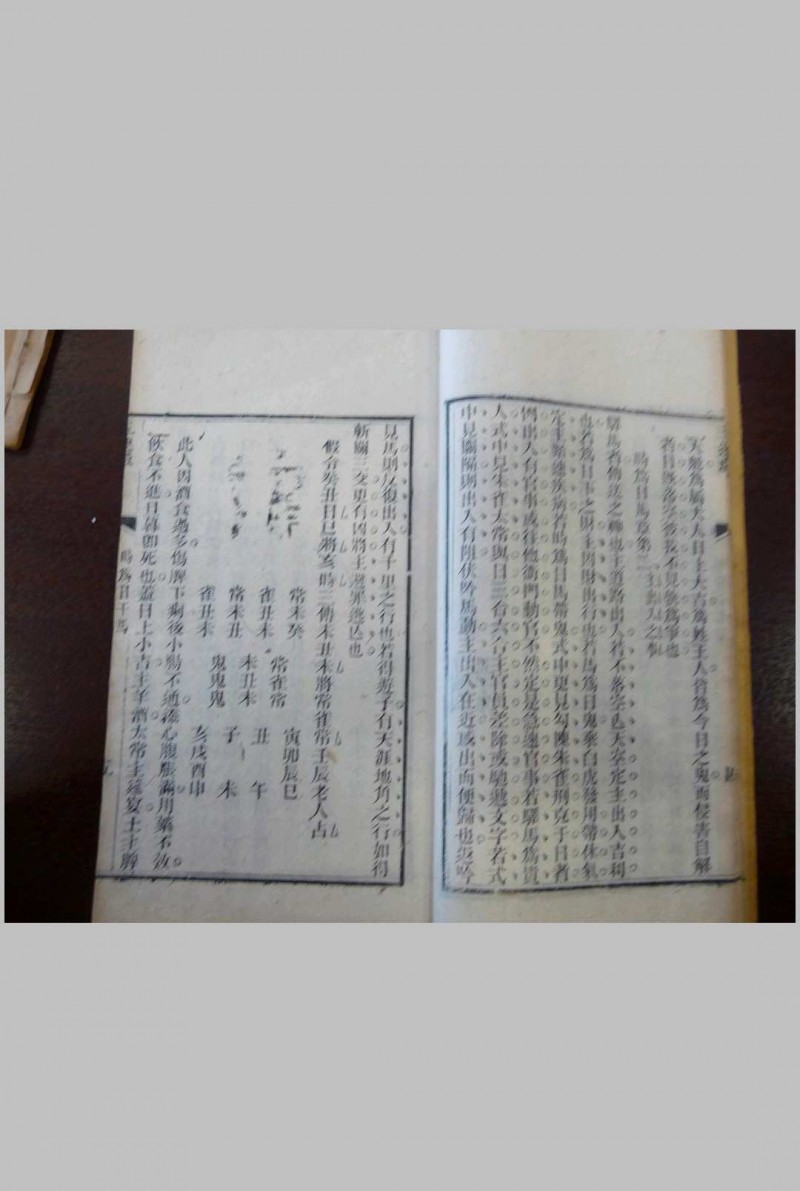 天魁爲屬大人日上大吉爲姓王人皆爲今日之鬼而侵害自解
者日無落空被我不見狹爲爭也
時爲日馬章第二 主出入之事
驛馬者傳送之神也主道路出入若不落空亡天空定主出入吉利
也若爲日下之財主因財出行也若馬爲日鬼乘白虎發用帶休氣
定主頻速疾病若時爲日馬帶鬼式中更見勾陳朱雀刑克于日者
例出入有官事或往他衙門動官不然定是急速官事若驛馬爲貴
人式中見朱雀太常與日三合六合主官員差除或馳遞文字若式
中見關隔則出入有阻伏吟馬動主出入在近或出而便歸也返吟
見馬則反復出入有千里之行也若得遊子有天涯地角之行如得
斬關三交更有凶將主避罪逃亡也
假令癸丑日巳將亥時三傳未丑未將常雀常壬辰老人占
常未癸
雀丑未 常雀常 寅卯辰巳
常未丑 未丑未 丑 午
雀丑未 鬼鬼鬼 子 未
亥戌酉申
此人因酒食過多傷脾下痢後小腸不通湊心腹脹滿用藥不效
飲食不進日暮即死也蓋日上小吉主羊酒太常主筵宴土主脾
時爲日干馬